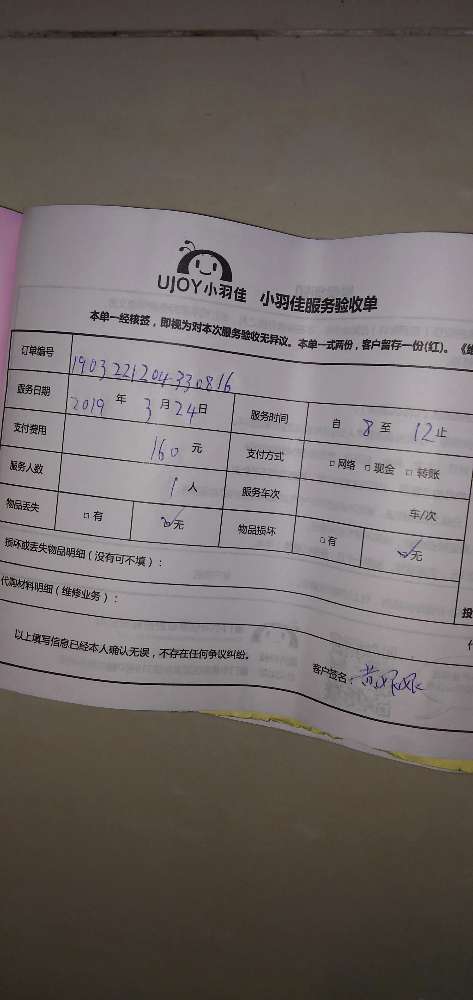 UJOY小羽佳 小羽佳服务验收单
本单一经核签，即视为对本次服务验收无异议。本单一式两份，客户留存一份(红)。
订单编号 1903221204330816
服务日期 2019 年 3 月 24 日 服务时间 自 8 至 12 止
支付费用 160 元 支付方式 □网络 □现金 □转账
服务人数 1 人 服务车次 车/次
物品丢失 □有 ☑无 物品损坏 □有 ☑无
损坏或丢失物品明细（没有可不填）：
代购材料明细（维修业务）：
以上填写信息已经本人确认无误，不存在任何争议纠纷。
客户签名：